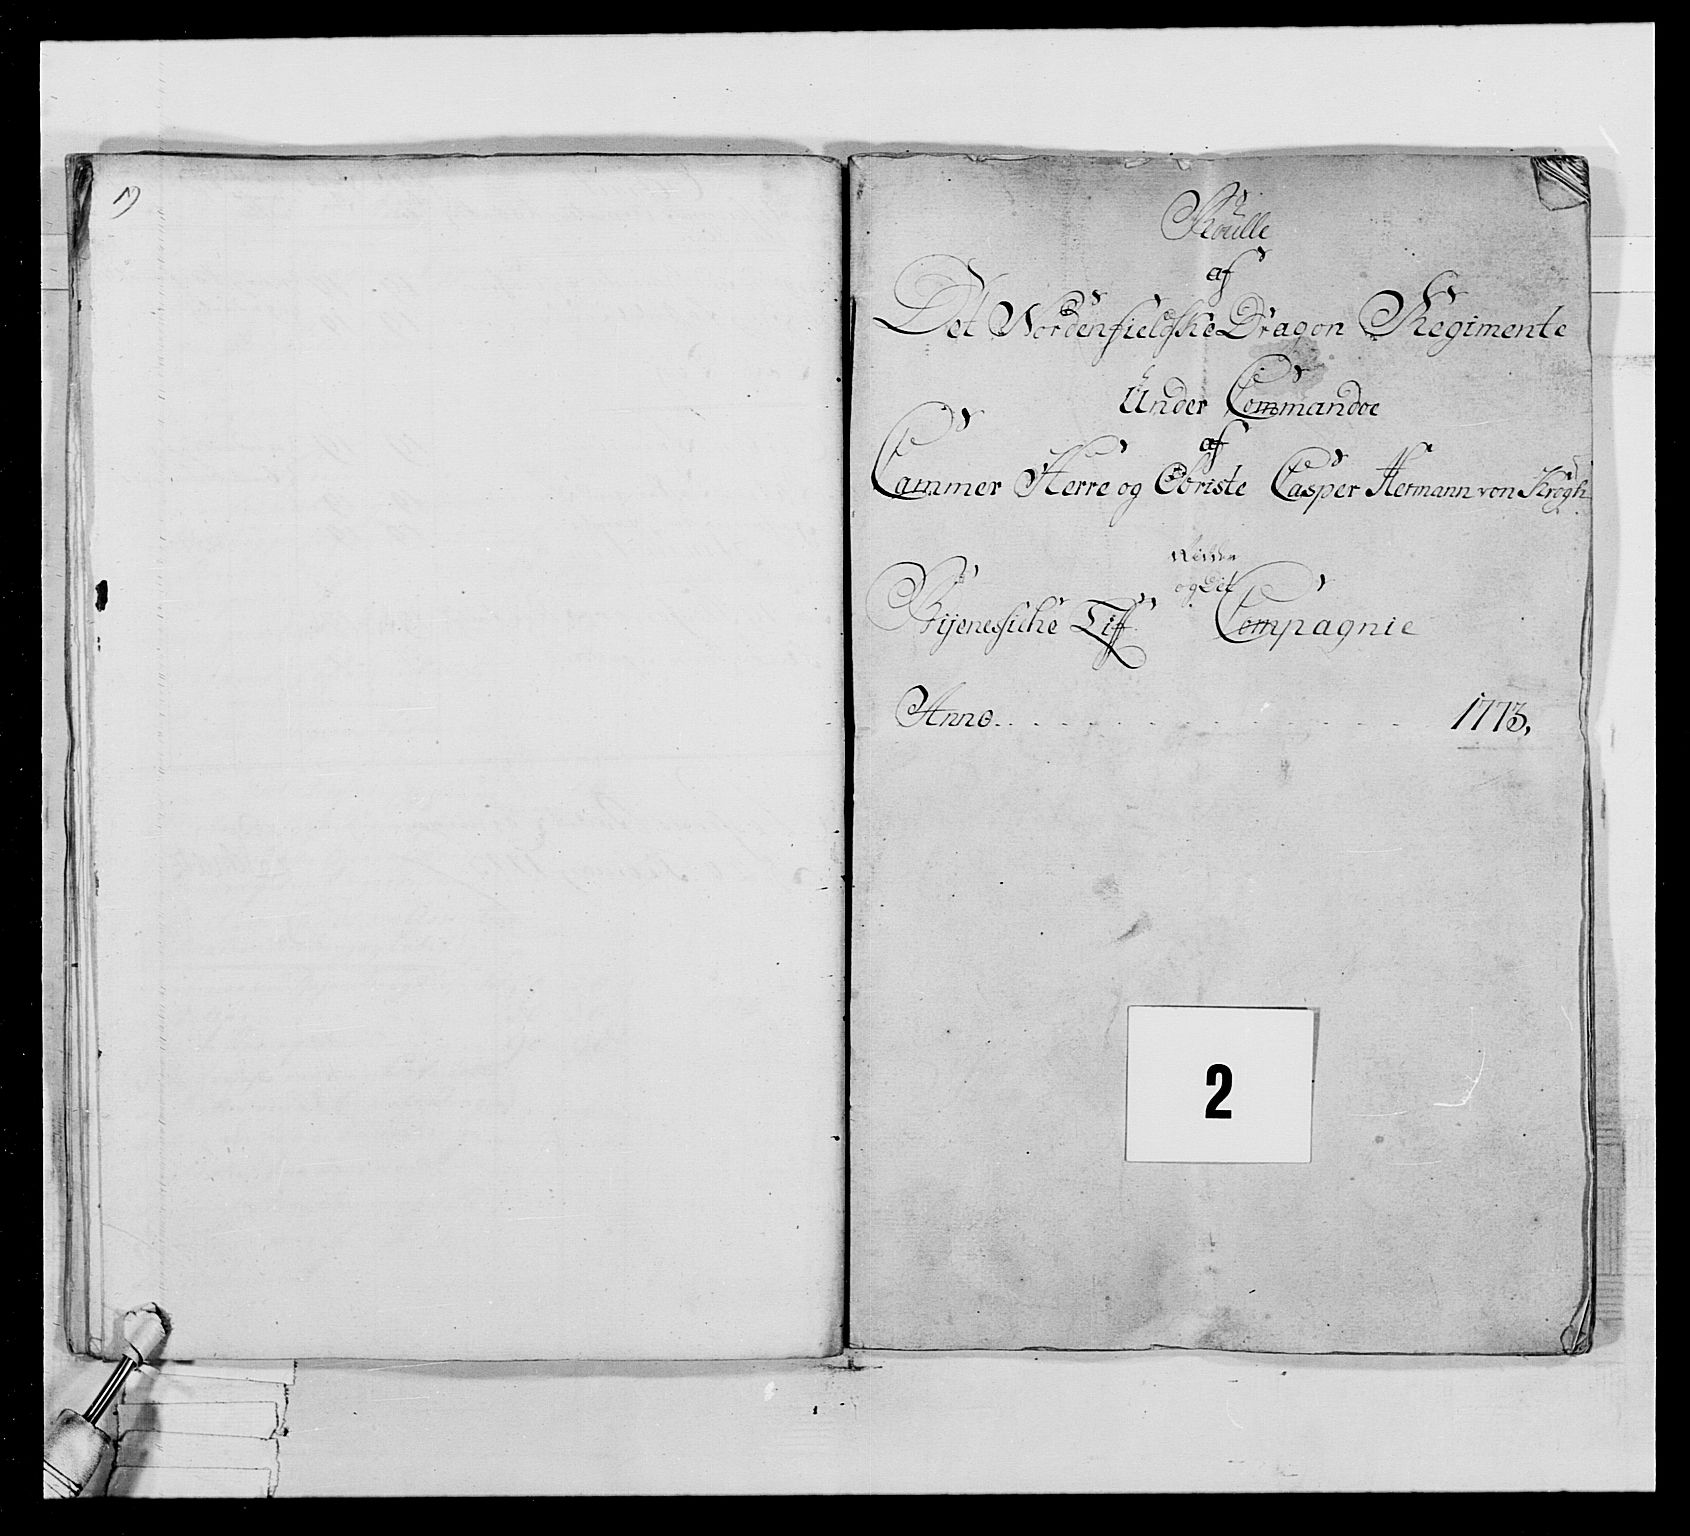 Roulle
af
Det Nordenfieldske Dragon Regimente
Under Commandoe
af
Cammer Herre og Obriste Casper Hermann von Krogh
og det
Bÿenesfiche Compagnie
Anno. 1773,
2